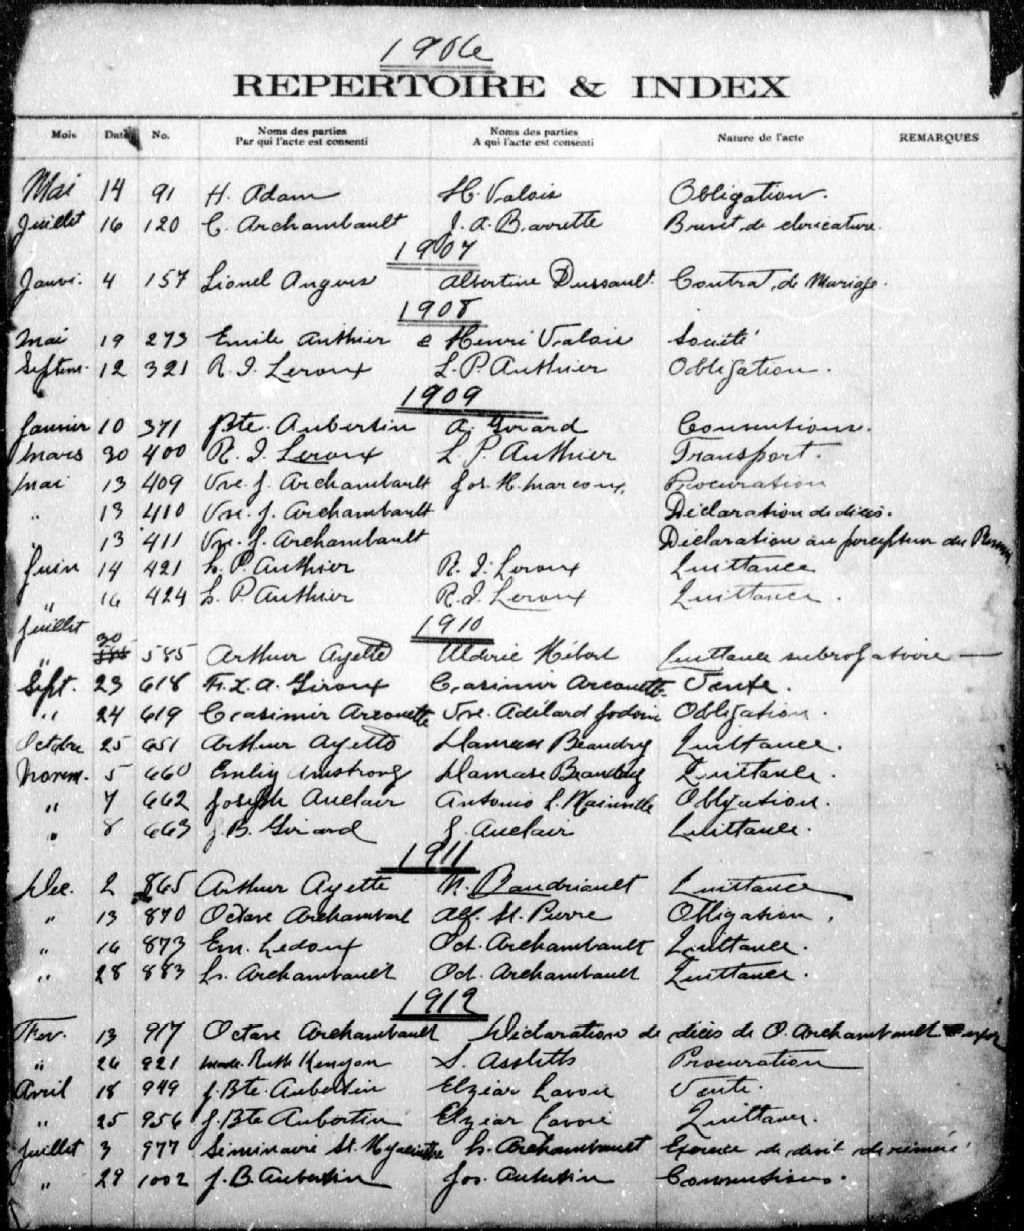 1906
REPERTOIRE & INDEX
Mois Date No. Noms des parties Par qui l'acte est consenti Noms des parties A qui l'acte est consenti Nature de l'acte REMARQUES
Mai 14 91 H. Adam H. Valois Obligation.
Juillet 16 120 C. Archambault J. A. Barrette Brevet de clericature.
1907
Janvi. 4 157 Lionel Angers Albertine Dussault. Contrat de Mariage.
1908
Mai 19 273 Emile Authier & Henri Valois Société
Septem. 12 321 R. I. Leroux L. P. Authier Obligation.
1909
Janvier 10 371 Bte. Aubertin A. Girard Conventions.
Mars 30 400 R. I. Leroux L. P. Authier Transport.
Mai 13 409 Vve. J. Archambault Jos. H. Marcoux, Procuration
" 13 410 Vve. J. Archambault Déclaration de décès.
" 13 411 Vve. J. Archambault Déclaration au percepteur du
Juin 14 421 L. P. Authier R. I. Leroux Quittance
" 16 424 L. P. Authier R. I. Leroux Quittance.
Juillet
1910
" 30 585 Arthur Ayette Alderic Hébert Quittance subrogatoire
Sept. 23 618 F. X. A. Giroux Casimir Arcouette Vente.
" 24 619 Casimir Arcouette Vve. Adélard Jodoin Obligation.
Octobre 25 651 Arthur Ayette Damase Beaudry Quittance.
Novem. 5 660 Armstrong Damase Beaudry Quittance.
" 7 662 Joseph Auclair Antonio L. Mainville Obligation.
" 8 663 J. B. Girard J. Auclair Quittance.
1911
Dec. 2 865 Arthur Ayette N. Baudriault Quittance
" 13 870 Octave Archambault Alf. St. Pierre Obligation.
" 16 873 Em. Ledoux Oct. Archambault Quittance.
" 28 883 L. Archambault Oct. Archambault Quittance.
1912
Fev. 13 917 Octave Archambault Déclaration de décès de O. Archambault
" 26 921 Ruth Kenyon S. Procuration
Avril 18 949 J. Bte. Aubertin Elzéar Lavoie Vente.
" 25 956 J. Bte Aubertin Elzéar Lavoie Quittance.
Juillet 3 977 Séminaire St. Hyacinthe L. Archambault Exercice de droit de réméré
" 29 1002 J. B Aubertin Jos. Aubertin Conventions.